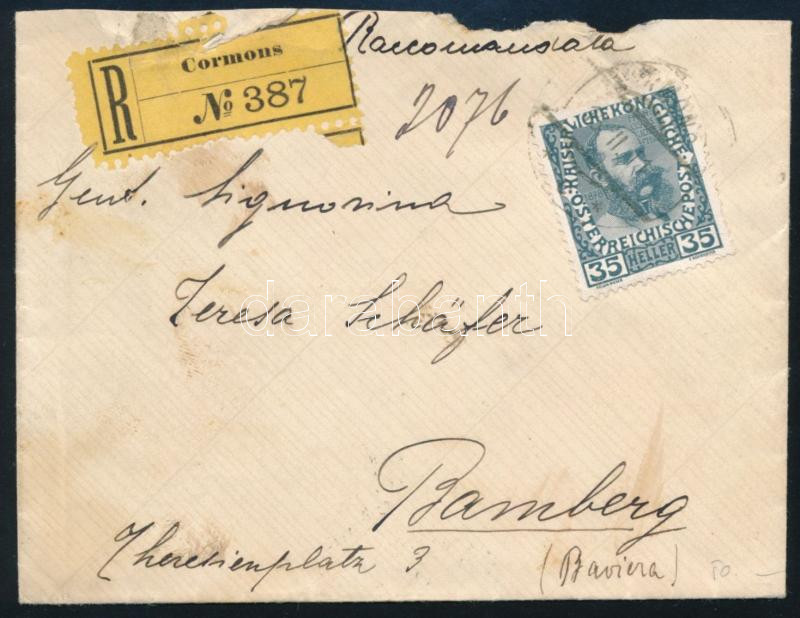 Raccomandata
R
Cormons
№ 387
2076
KAISERLICHE KÖNIGLICHE
ÖSTERREICHISCHE POST
35 HELLER 35
Gent. Signorina
Teresa Schäfer
darabanth
Bamberg
Theresienplatz 3
(Baviera)
50.—